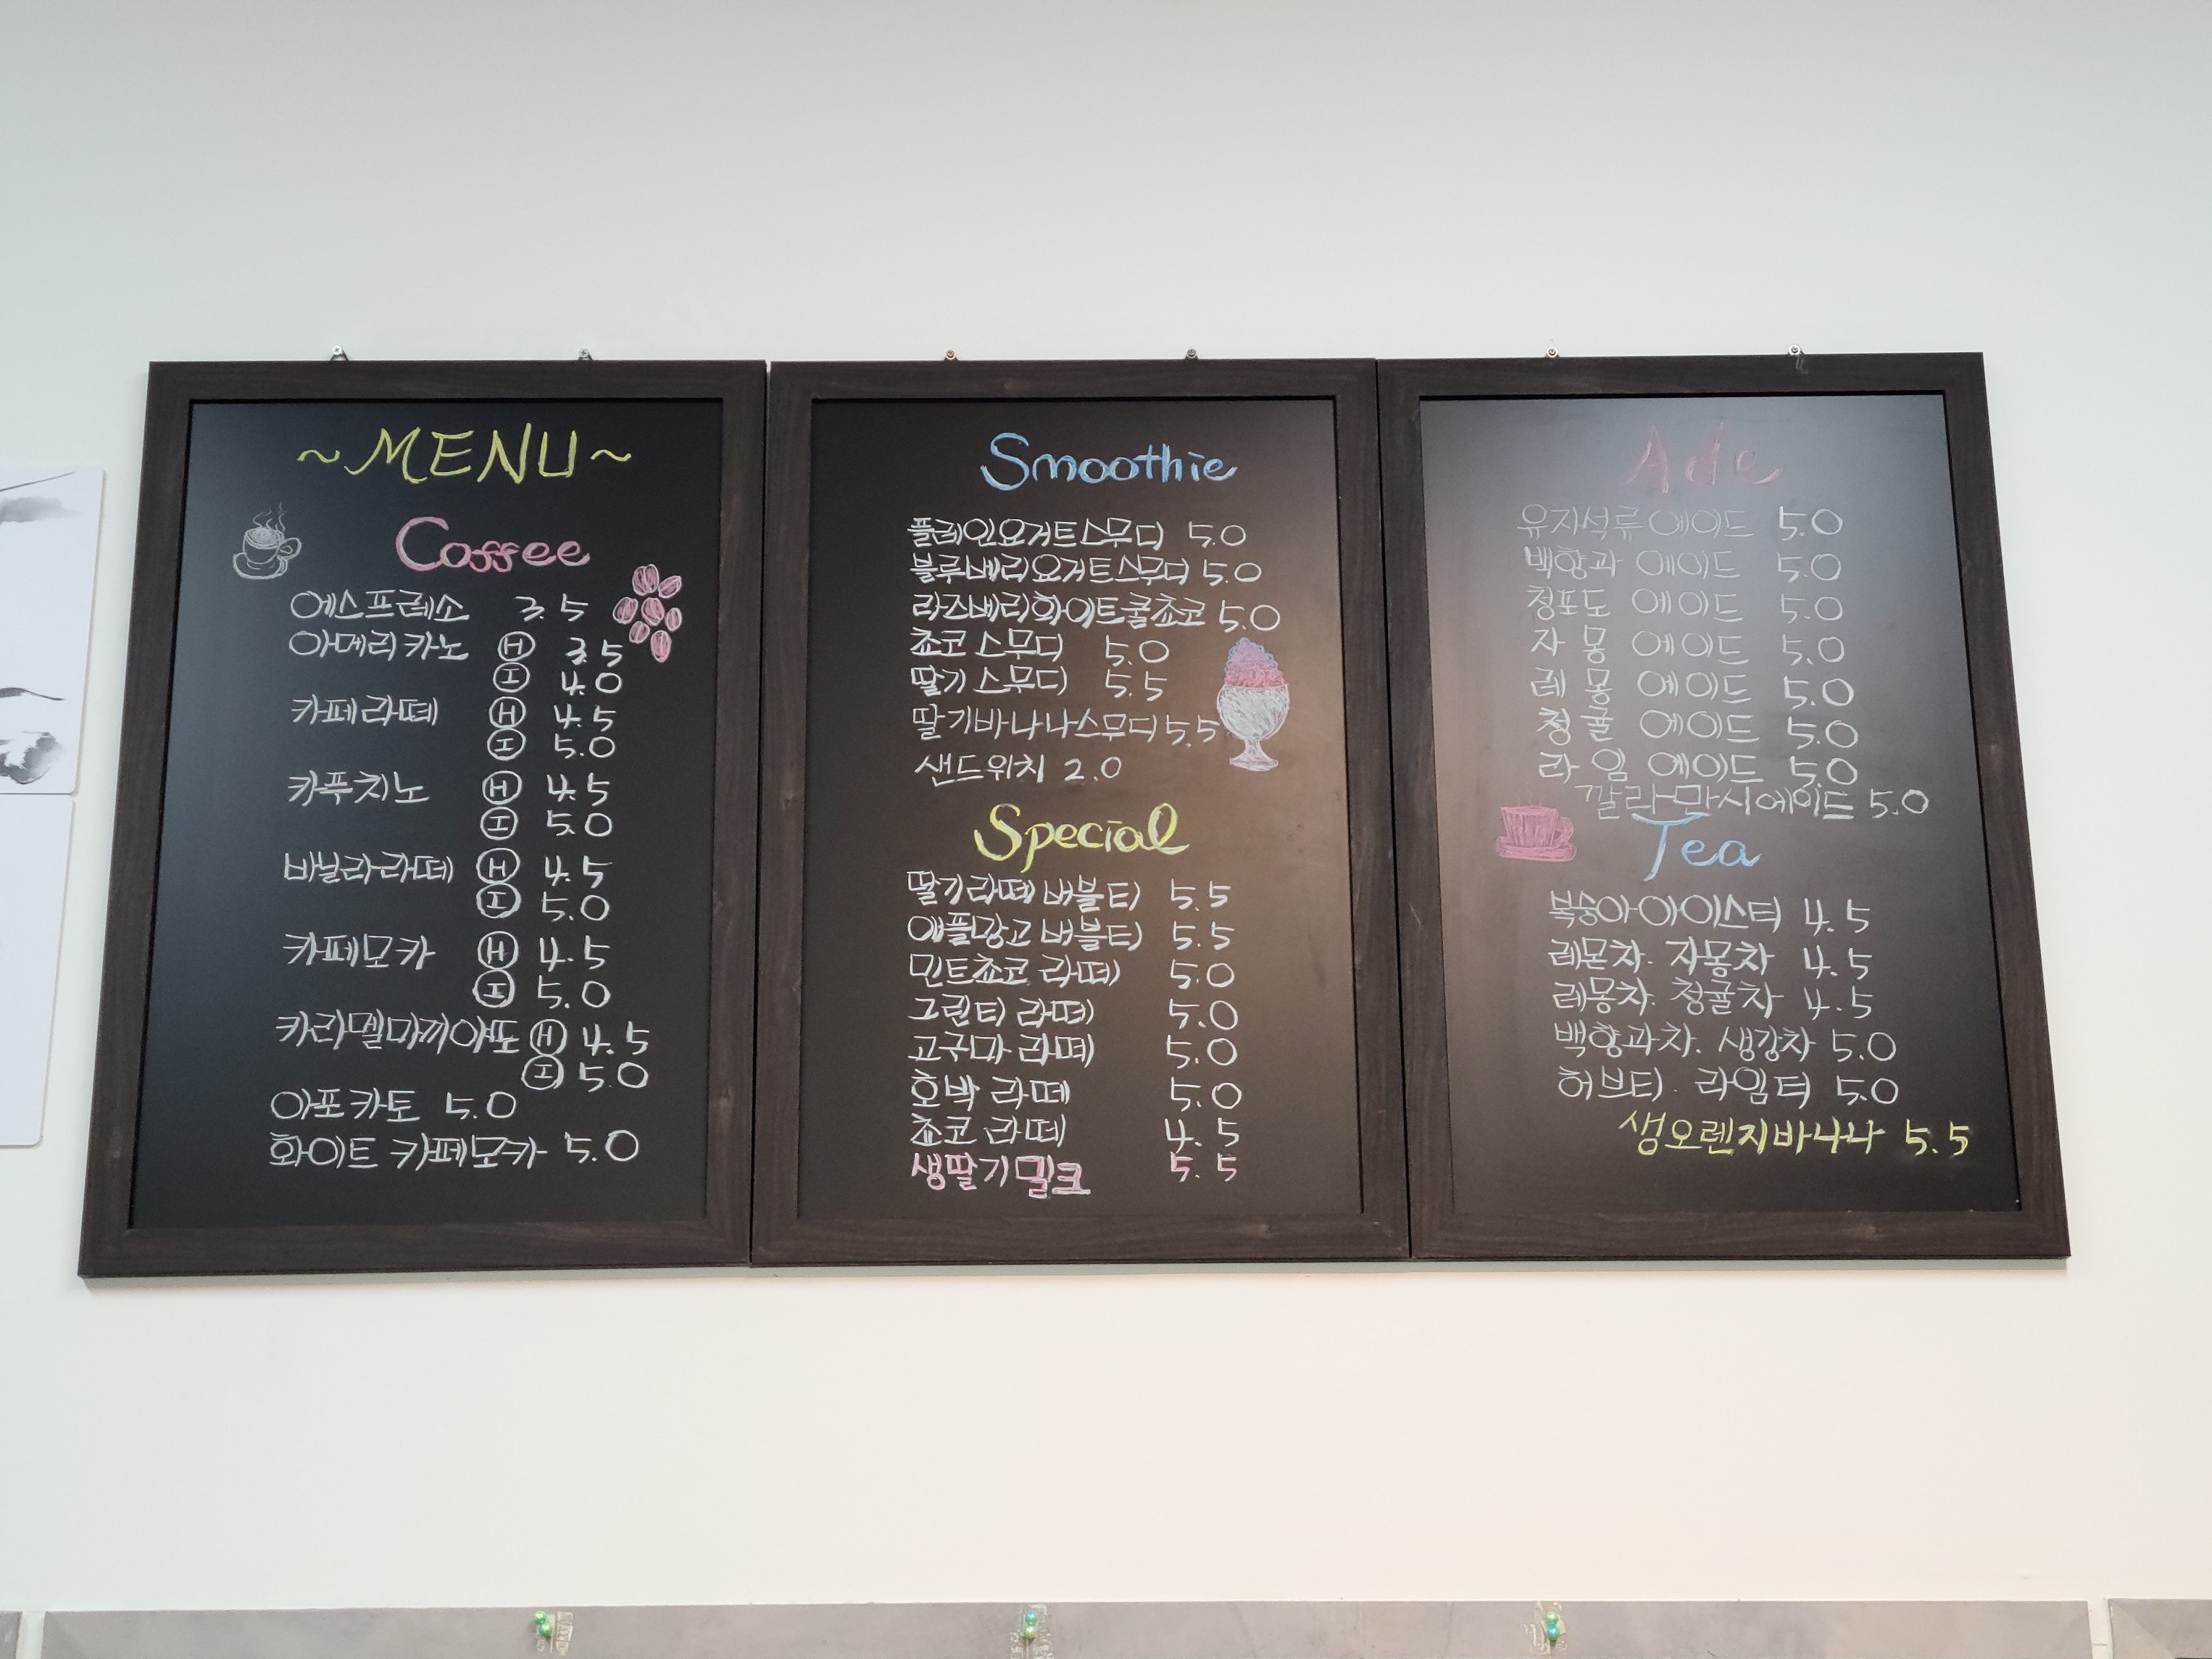 ~MENU~
Coffee
에스프레소 3.5
아메리카노 Ⓗ 3.5
Ⓘ 4.0
카페라떼 Ⓗ 4.5
Ⓘ 5.0
카푸치노 Ⓗ 4.5
Ⓘ 5.0
바닐라라떼 Ⓗ 4.5
Ⓘ 5.0
카페모카 Ⓗ 4.5
Ⓘ 5.0
카라멜마끼야또 Ⓗ 4.5
Ⓘ 5.0
아포카토 5.0
화이트 카페모카 5.0
Smoothie
플레인요거트스무디 5.0
블루베리요거트스무디 5.0
라즈베리화이트쿨쵸코 5.0
쵸코 스무디 5.0
딸기 스무디 5.5
딸기바나나스무디 5.5
샌드위치 2.0
Special
딸기라떼 버블티 5.5
애플망고 버블티 5.5
민트쵸코 라떼 5.0
그린티 라떼 5.0
고구마 라떼 5.0
호박 라떼 5.0
쵸코 라떼 4.5
생딸기밀크 5.5
Ade
유자석류에이드 5.0
백향과 에이드 5.0
청포도 에이드 5.0
자몽 에이드 5.0
레몽 에이드 5.0
청귤 에이드 5.0
라임 에이드 5.0
깔라만시에이드 5.0
Tea
복숭아아이스티 4.5
레몬차. 자몽차 4.5
레몽차. 청귤차 4.5
백향과차. 생강차 5.0
허브티. 라임티 5.0
생오렌지바나나 5.5